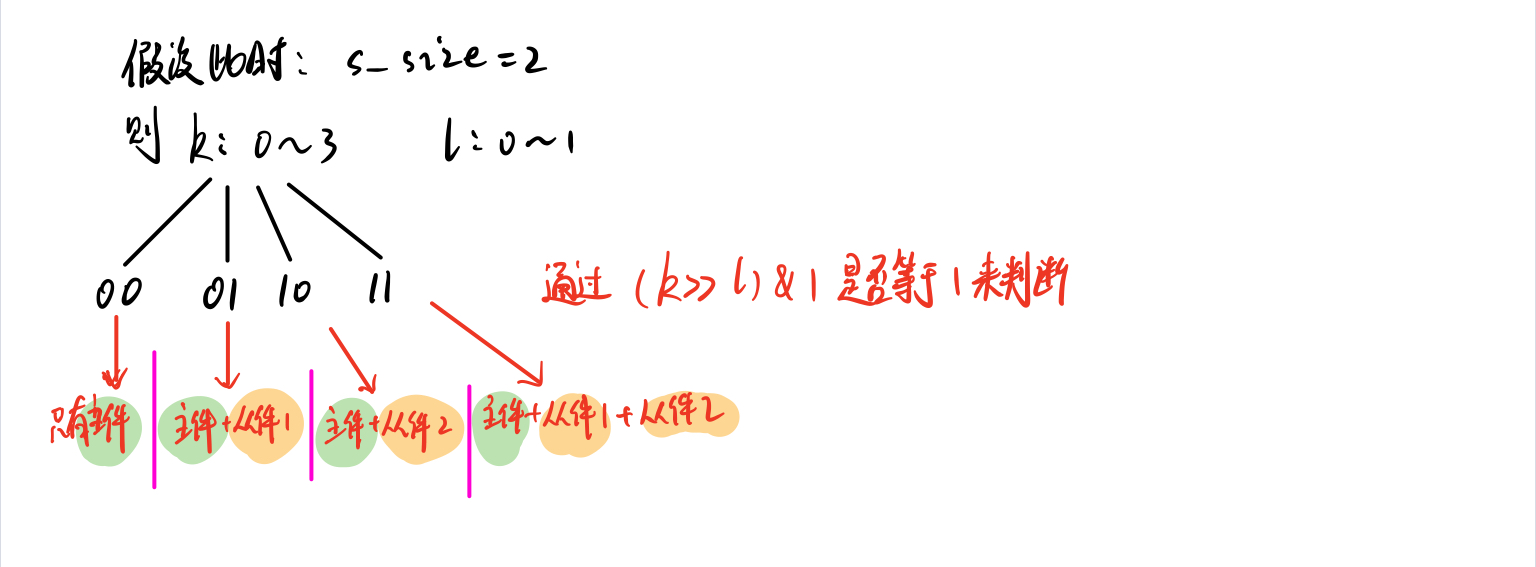 假设此时: s_size=2
则 k: 0~3 l: 0~1
00 01 10 11
通过 (k>>l)&1 是否等于1来判断
只有主件 主件+从件1 主件+从件2 主件+从件1+从件2